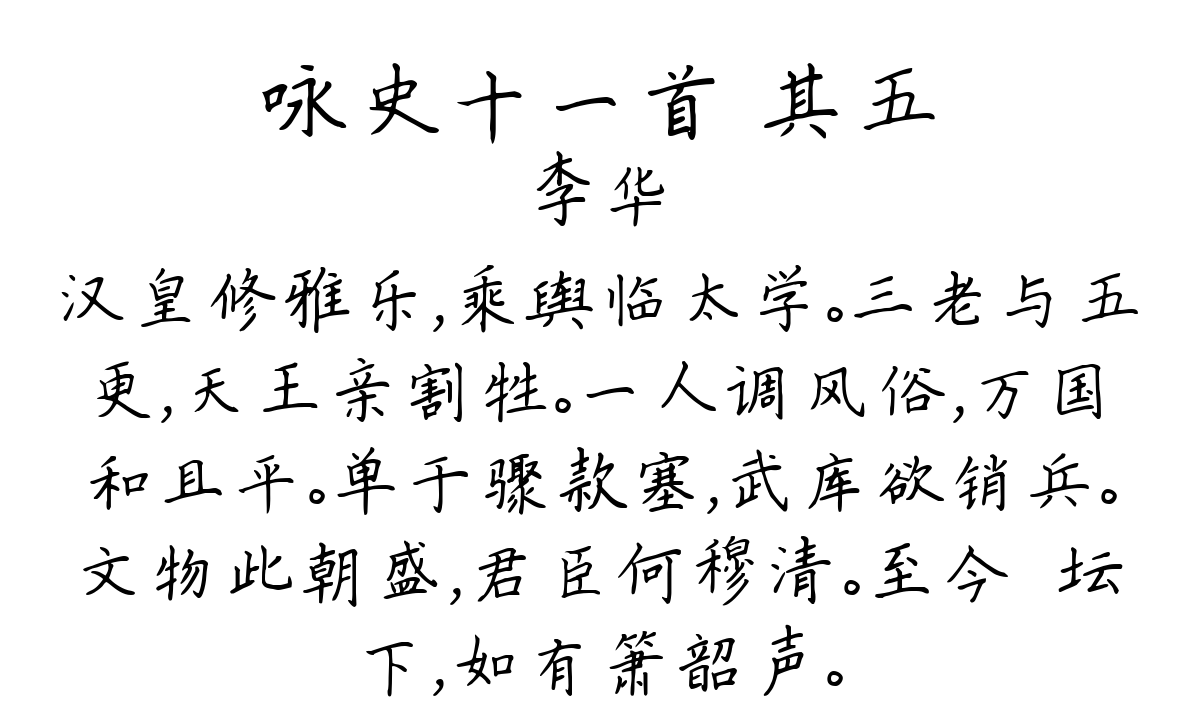 咏史十一首 其五
李华
汉皇修雅乐,乘舆临太学。三老与五
更,天王亲割牲。一人调风俗,万国
和且平。单于骤款塞,武库欲销兵。
文物此朝盛,君臣何穆清。至今 坛
下,如有箫韶声。